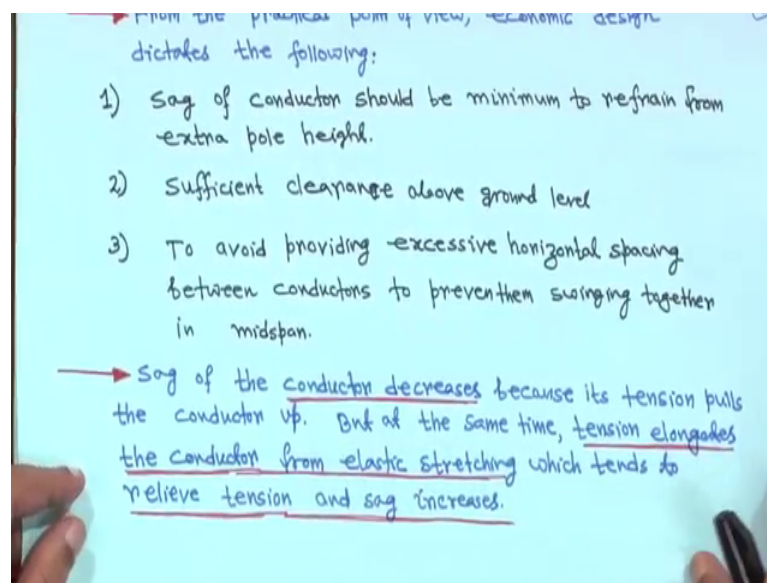 From the practical point of view, economic design
dictates the following:
1) Sag of conductor should be minimum to refrain from
extra pole height.
2) Sufficient clearance above ground level
3) To avoid providing excessive horizontal spacing
between conductors to preventhem swinging together
in midspan.
Sag of the conductor decreases because its tension pulls
the conductor up. But at the same time, tension elongates
the conductor from elastic stretching which tends to
relieve tension and sag increases.